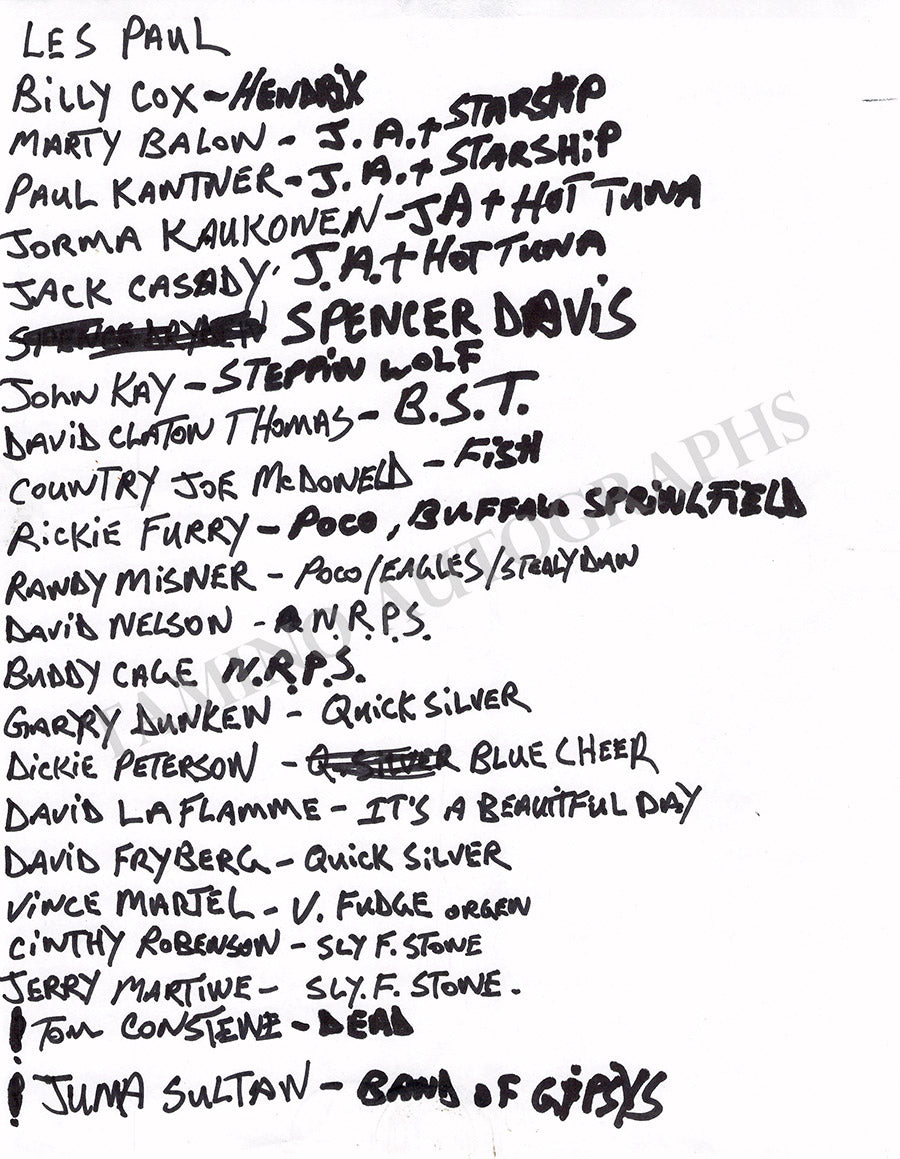 LES PAUL
BILLY COX - HENDRIX
MARTY BALON - J.A. + STARSHIP
PAUL KANTNER - J.A. + STARSHIP
JORMA KAUKONEN - JA + HOT TUNA
JACK CASADY. J.A. + HOT TUNA
SPENCER DAVIS
JOHN KAY - STEPPIN WOLF
DAVID CLATON THOMAS - B.S.T.
COUNTRY JOE McDONELD - FISH
RICKIE FURRY - POCO, BUFFALO SPRINLFIELD
RANDY MISNER - POCO/EAGLES/STEALY DAN
DAVID NELSON - N.R.P.S.
BUDDY CAGE N.R.P.S.
GARRY DUNKEN - QUICKSILVER
DICKIE PETERSON - Q. SILVER BLUE CHEER
DAVID LAFLAMME - IT'S A BEAUTIFUL DAY
DAVID FRYBERG - QUICK SILVER
VINCE MARTEL - V. FUDGE ORGEN
CINTHY ROBENSON - SLY F. STONE
JERRY MARTINE - SLY. F. STONE.
! TOM CONSTENE - DEAD
! JUMA SULTAN - BAND OF GIPSYS
TAMINO AUTOGRAPHS